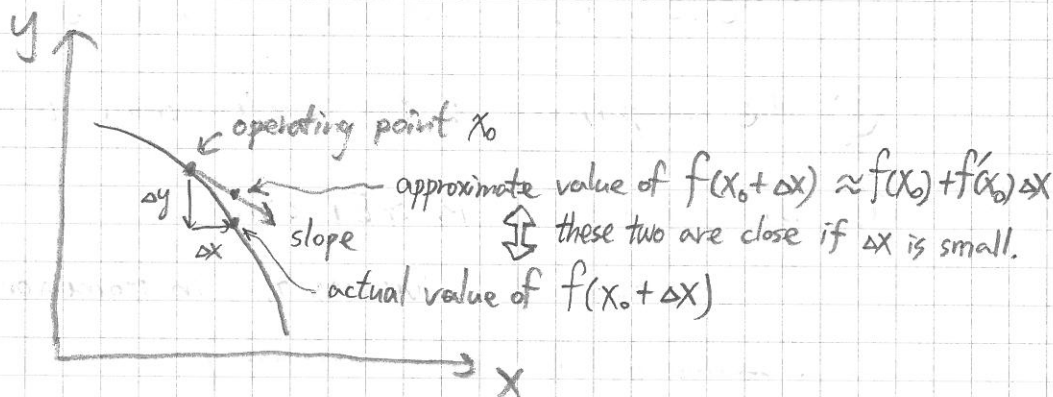 y
operating point x₀
approximate value of f(x₀+Δx) ≈ f(x₀)+f′(x₀)Δx
Δy
slope
these two are close if Δx is small.
Δx
actual value of f(x₀+Δx)
x